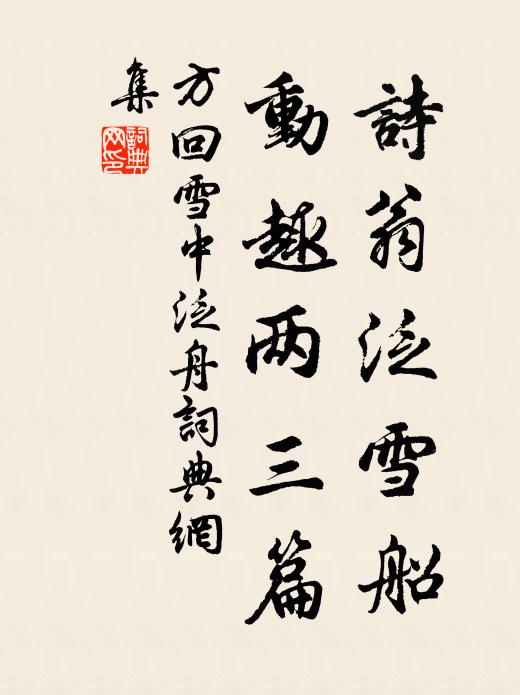 詩翁泛雪船
動趣两三篇
方回雪中泛舟詞典網
集
詞典网印